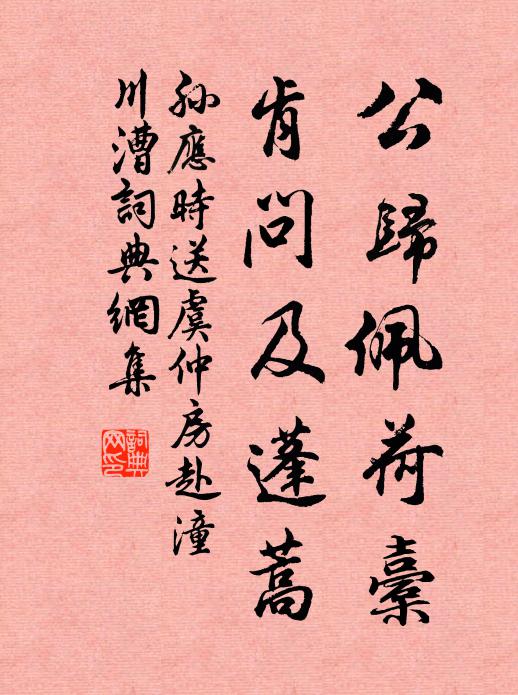 公歸佩荷橐
肯問及蓬蒿
孫應時送虞仲房赴潼
川漕詞典網集
詞典網印